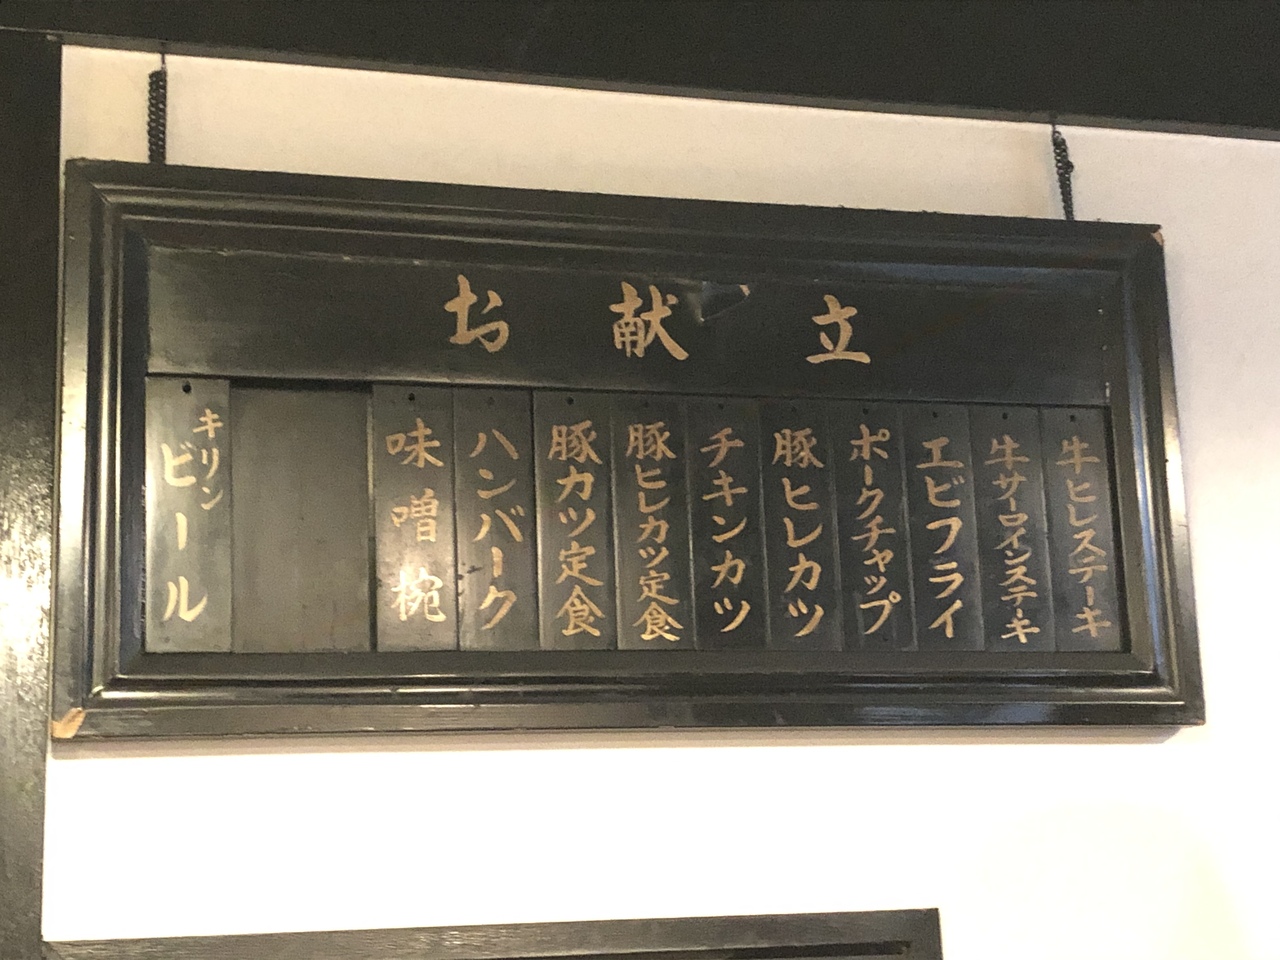 お献立
牛ヒレステーキ
牛サーロインステーキ
エビフライ
ポークチャップ
豚ヒレカツ
チキンカツ
豚ヒレカツ定食
豚カツ定食
ハンバーク
味噌椀
キリン
ビール